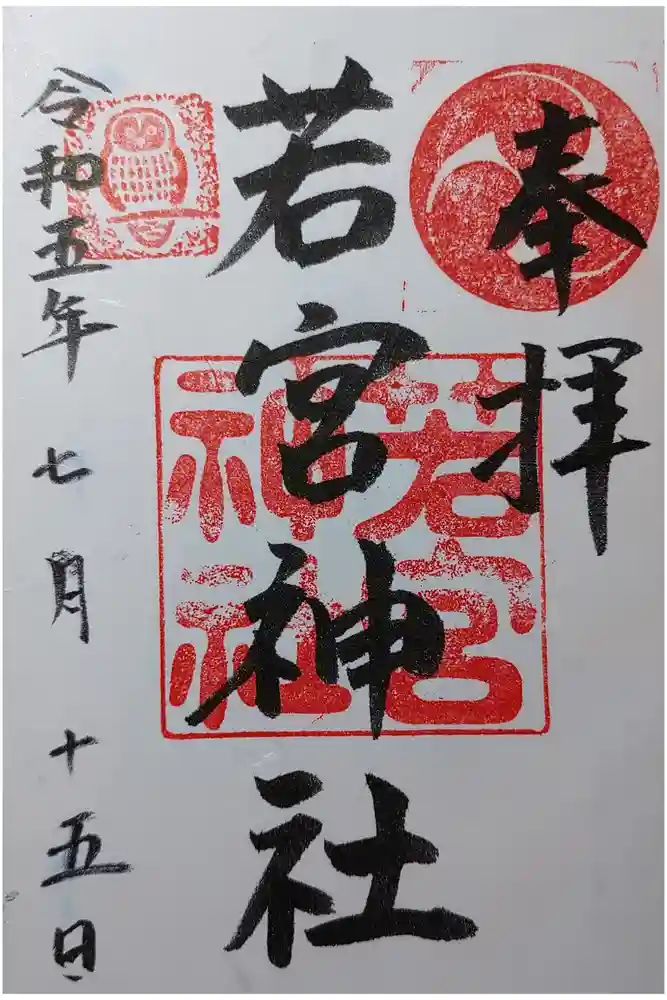 奉拝
若宮神社
若宮
神社
令和五年七月十五日